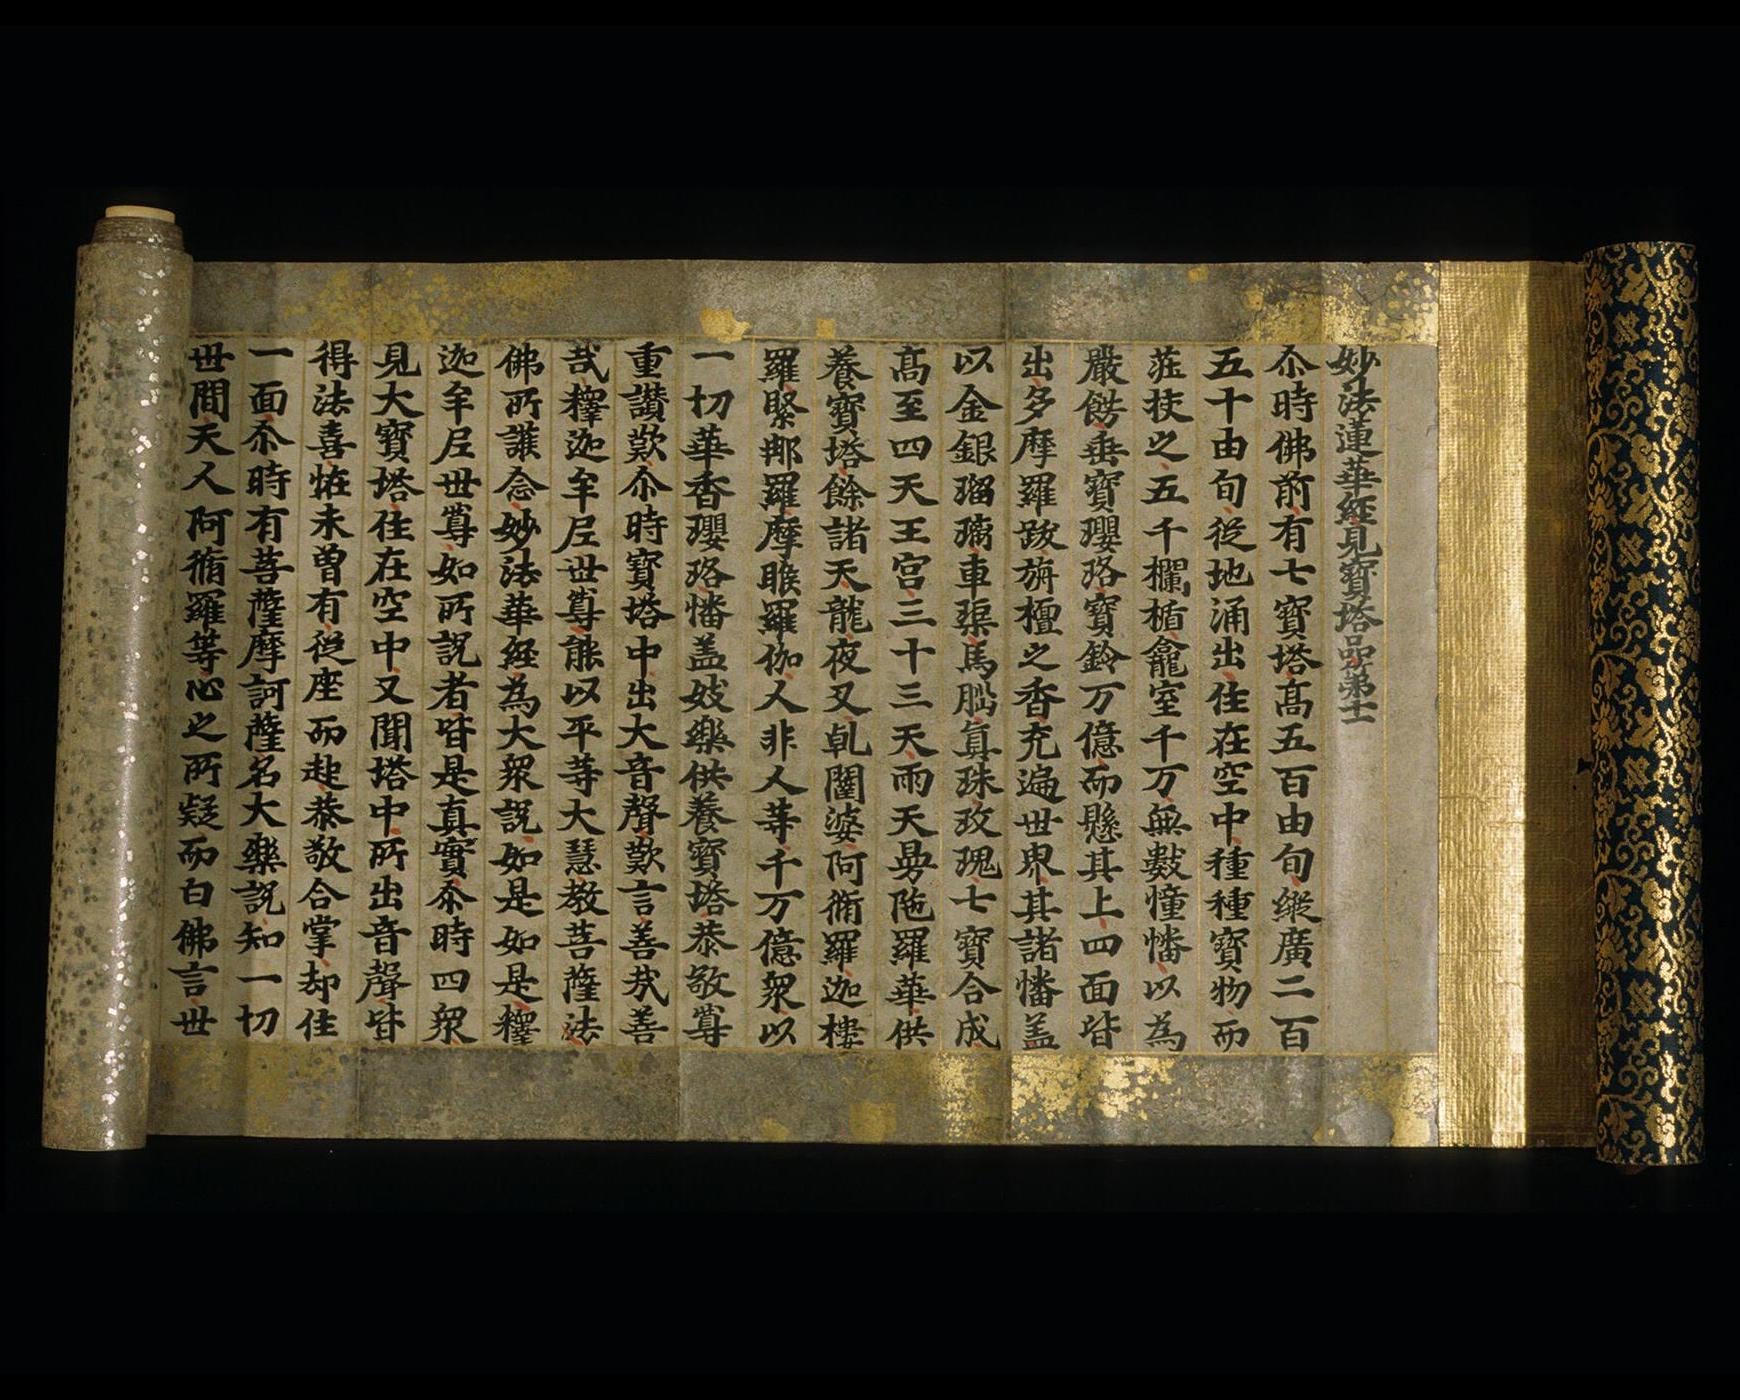 妙法蓮華經見寶塔品第十一
尒時佛前有七寶塔高五百由旬縱廣二百
五十由旬從地涌出住在空中種種寶物而
莊挍之五千欄楯龕室千万無數幢幡以為
嚴餝垂寶瓔珞寶鈴万億而懸其上四面皆
出多摩羅跋旃檀之香充遍世界其諸幡盖
以金銀瑠璃車𤦲馬腦真珠玫瑰七寶合成
高至四天王宮三十三天雨天曼陁羅華供
養寶塔餘諸天龍夜叉乹闥婆阿脩羅迦樓
羅緊那羅摩睺羅伽人非人等千万億衆以
一切華香瓔珞幡盖妓樂供養寶塔恭敬尊
重讃歎尒時寶塔中出大音聲歎言善㢤善
㢤釋迦牟尼世尊能以平等大慧教菩薩法
佛所護念妙法華經為大衆說如是如是釋
迦牟尼世尊如所說者皆是真實尒時四衆
見大寶塔住在空中又聞塔中所出音聲皆
得法喜恠未曾有從座而起恭敬合掌却住
一面尒時有菩薩摩訶薩名大樂說知一切
世間天人阿脩羅等心之所疑而白佛言世